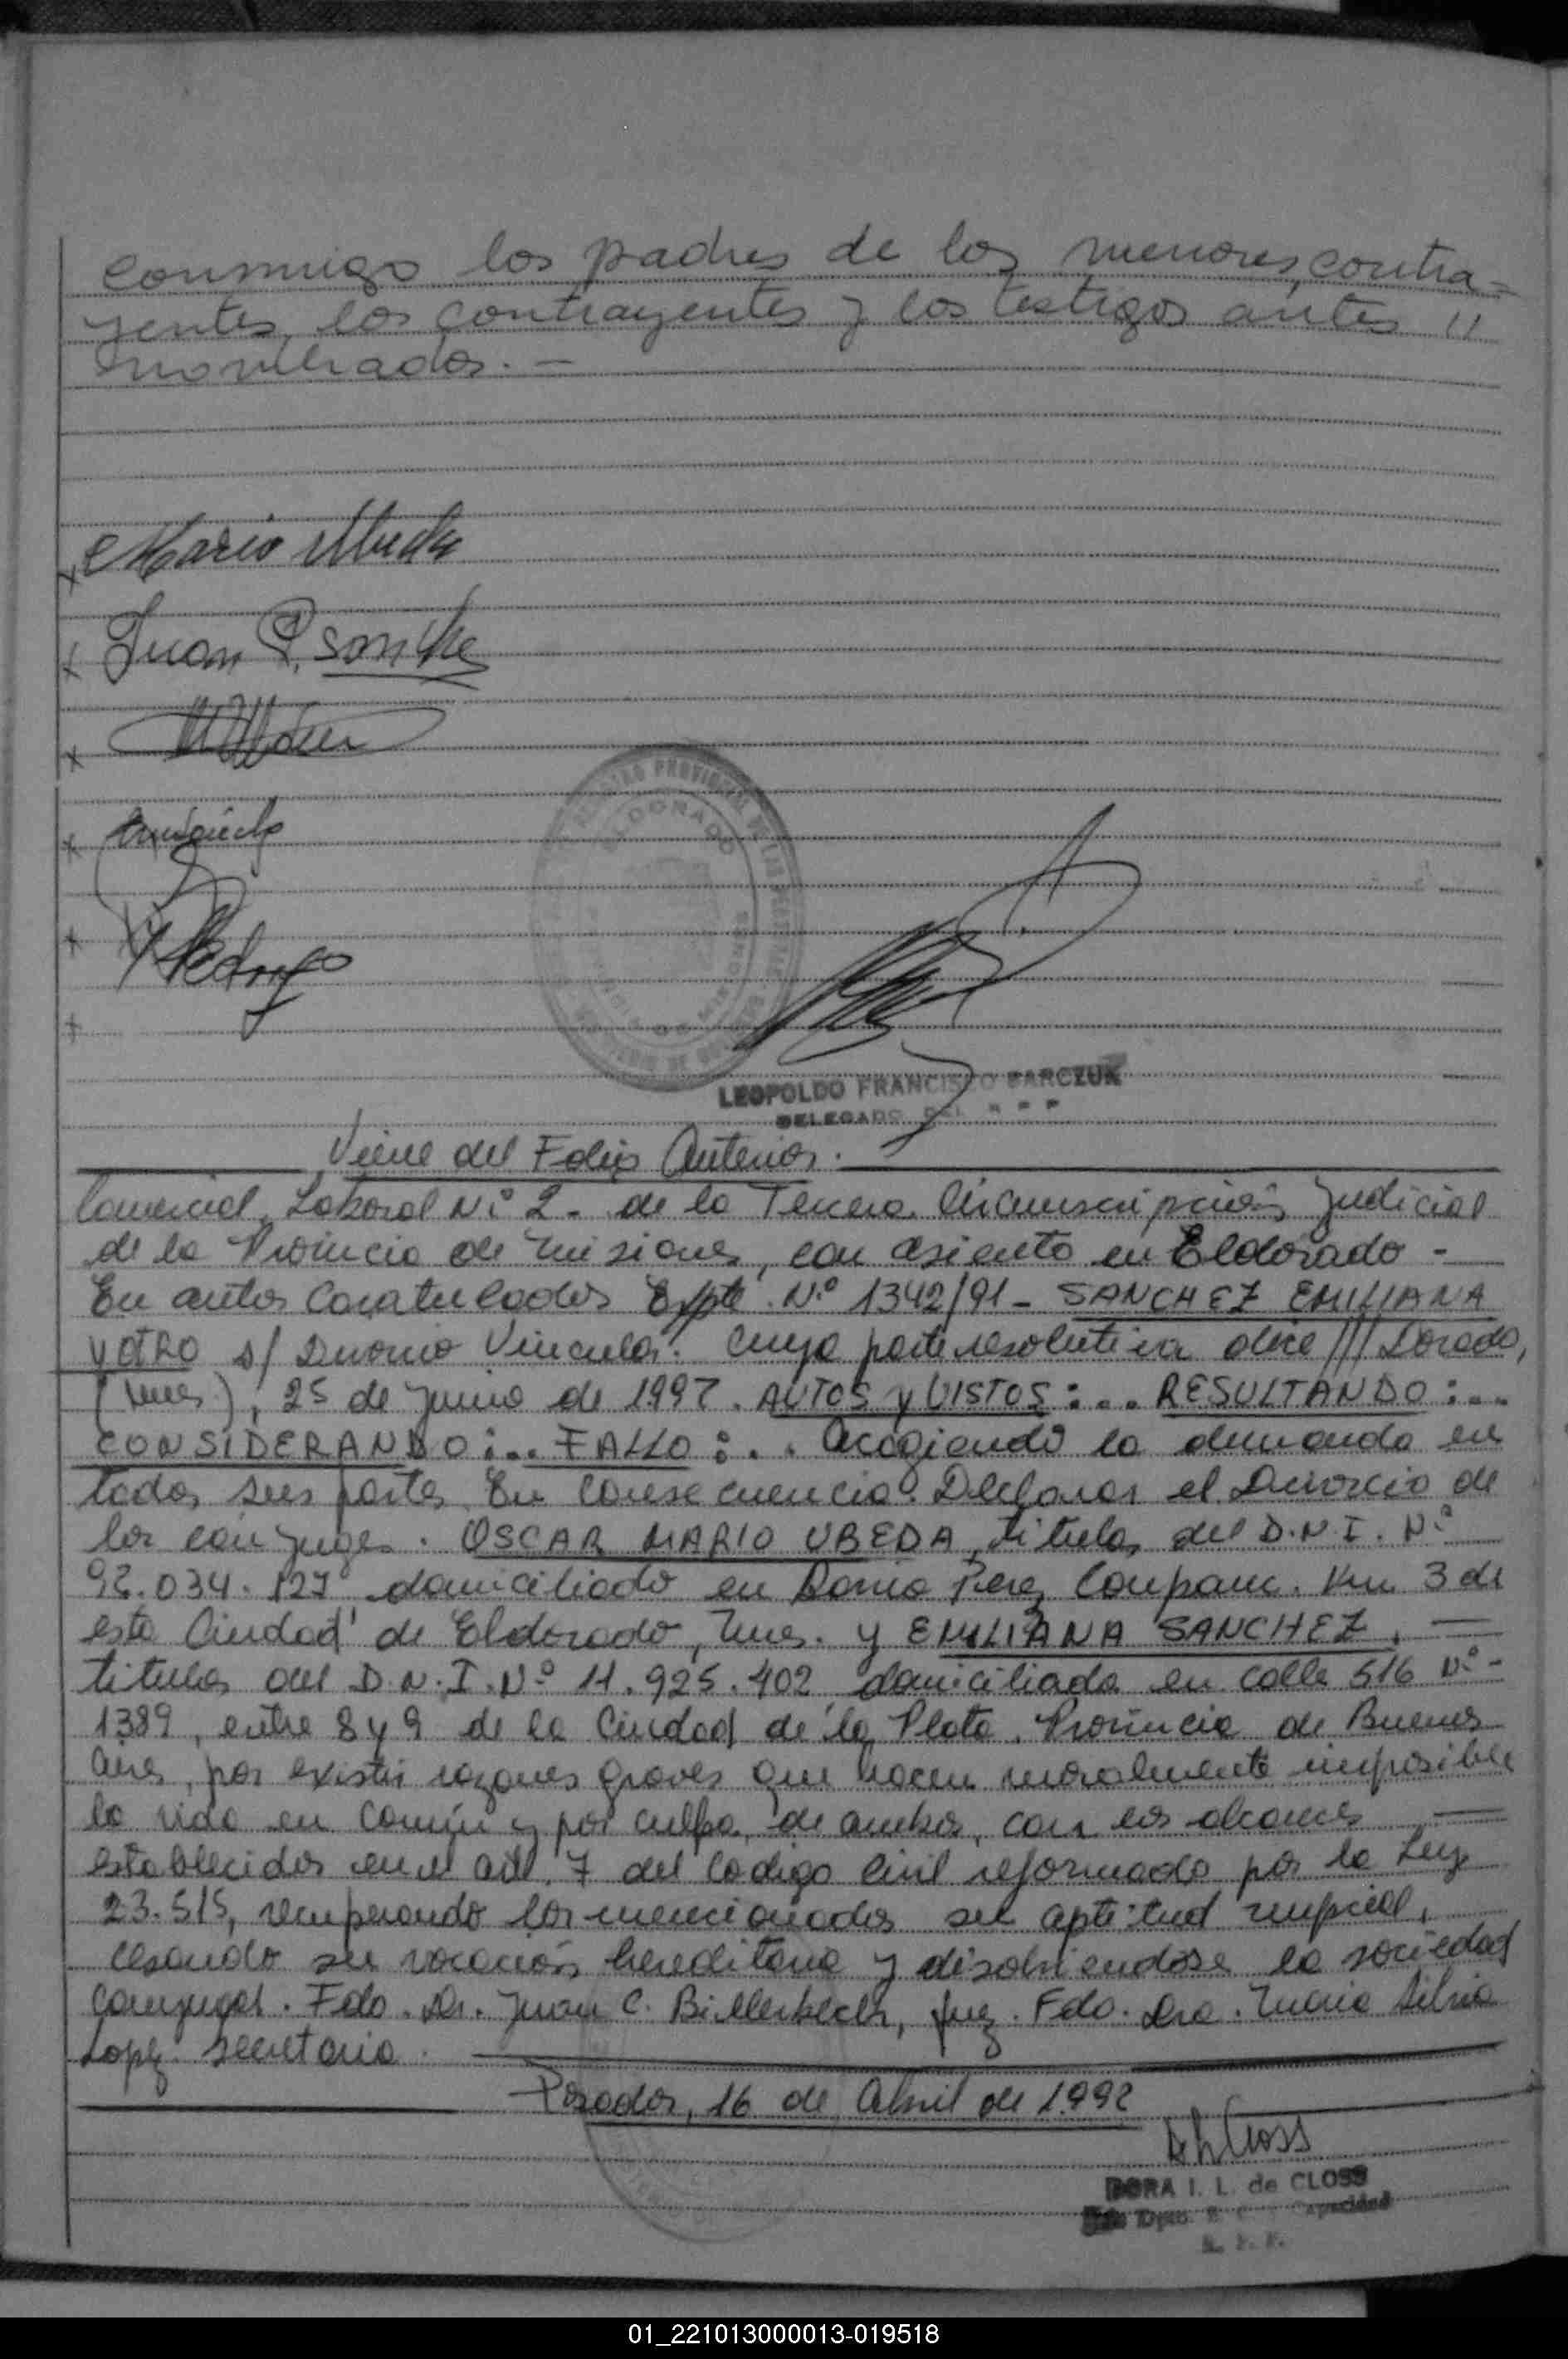 conmigo los padres de los menores contra-
yentes, los contrayentes y los testigos antes //
nombrados. —
Mario Ubeda
Juan P. Sanche
ELDORADO
LEOPOLDO FRANCISCO BARCZUK
DELEGADO DEL R P P
Viene del Folio Anterior.
Comercial, Laboral N° 2 - de la Tercera Circunscripción Judicial
de la Provincia de Misiones, con asiento en Eldorado -
En autos Caratulados Expte. N° 1342/91 - SANCHEZ EMILIANA
y OTRO s/ Divorcio Vincular. Cuya parte resolutiva dice /// Dorado,
(Mnes), 25 de Junio de 1997. AUTOS y VISTOS:... RESULTANDO:...
CONSIDERANDO:... FALLO:... Acogiendo la demanda en
todas sus partes. En Consecuencia. Declarar el Divorcio de
los cónyuges. OSCAR MARIO UBEDA, titular del D.N.I. N°
92.034.127 domiciliado en Barrio Perez Companc. Km 3 de
esta Ciudad de Eldorado, Mnes. y EMILIANA SANCHEZ, —
titular del D.N.I. N° 11.925.402 domiciliada en calle 516 N° -
1389, entre 8 y 9 de la Ciudad de la Plata, Provincia de Buenos
Aires, por existir razones graves que hacen moralmente imposible
la vida en Común y por culpa de ambos, con los alcances —
establecidos en el art. 7 del Codigo Civil reformado por la Ley
23.515, recuperando los mencionados su aptitud nupcial,
cesando su vocación hereditaria y disolviendose la sociedad
Conyugal. Fdo. Dr. Juan C. Billerbeck, Juez. Fdo. Dra. Maria Silvia
Lopez. Secretaria.
Posadas, 16 de Abril de 1992
D L Closs
DORA I. L. de CLOSS
Dpto. E. C. y Capacidad
R. P. P.
01_221013000013-019518